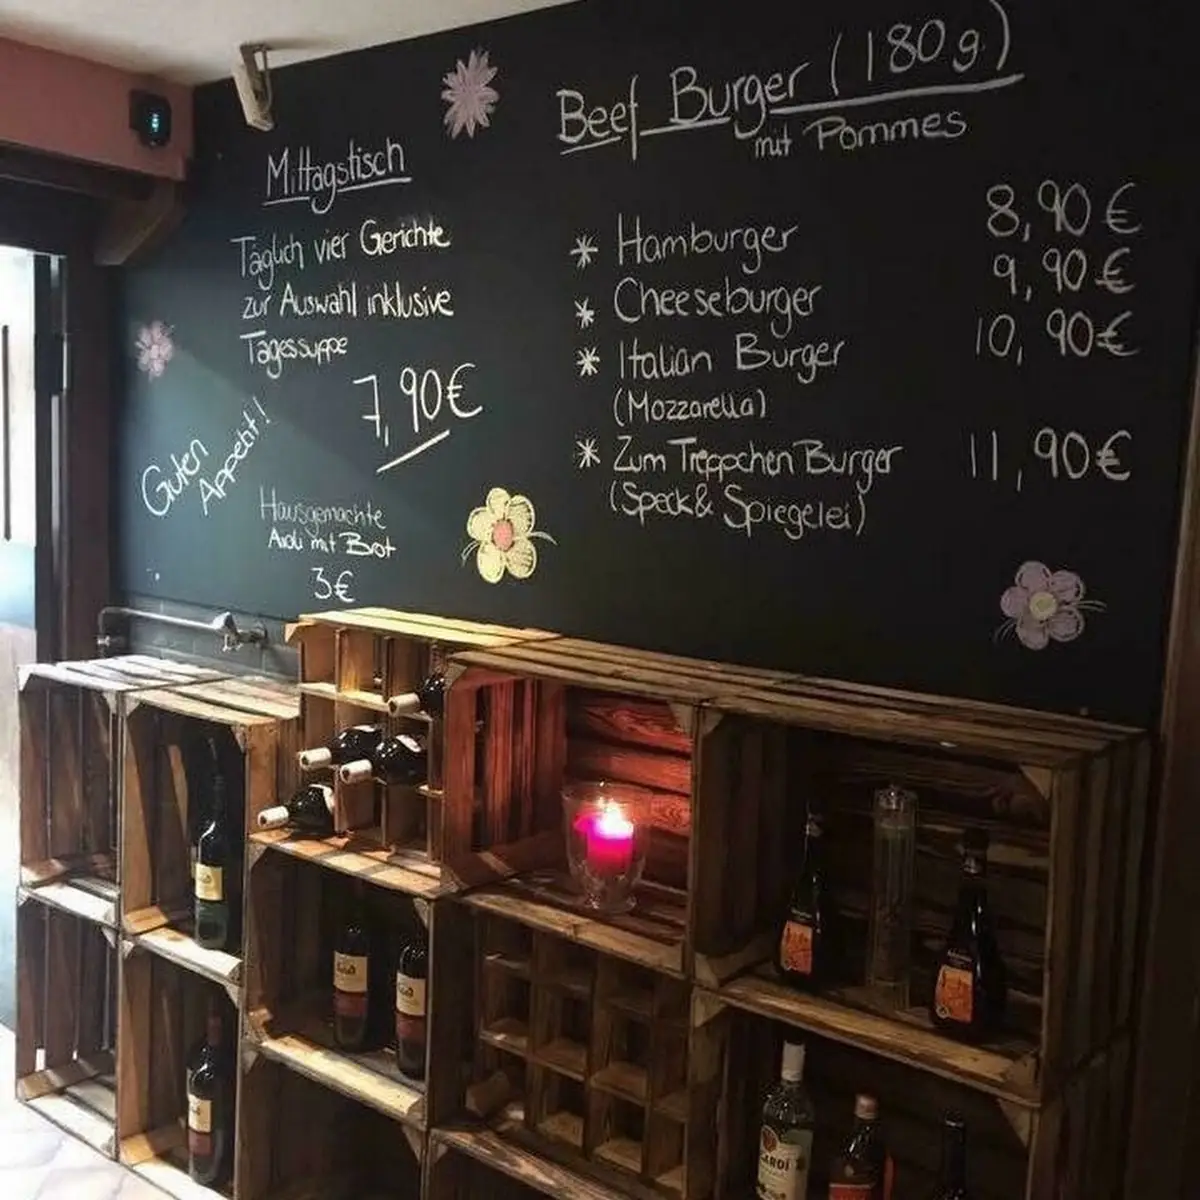 Mittagstisch
Täglich vier Gerichte
zur Auswahl inklusive
Tagessuppe
7,90€
Guten
Appetit!
Hausgemachte
Aioli mit Brot
3€
Beef Burger (180g)
mit Pommes
* Hamburger 8,90€
* Cheeseburger 9,90€
* Italian Burger 10,90€
(Mozzarella)
* Zum Treppchen Burger 11,90€
(Speck & Spiegelei)